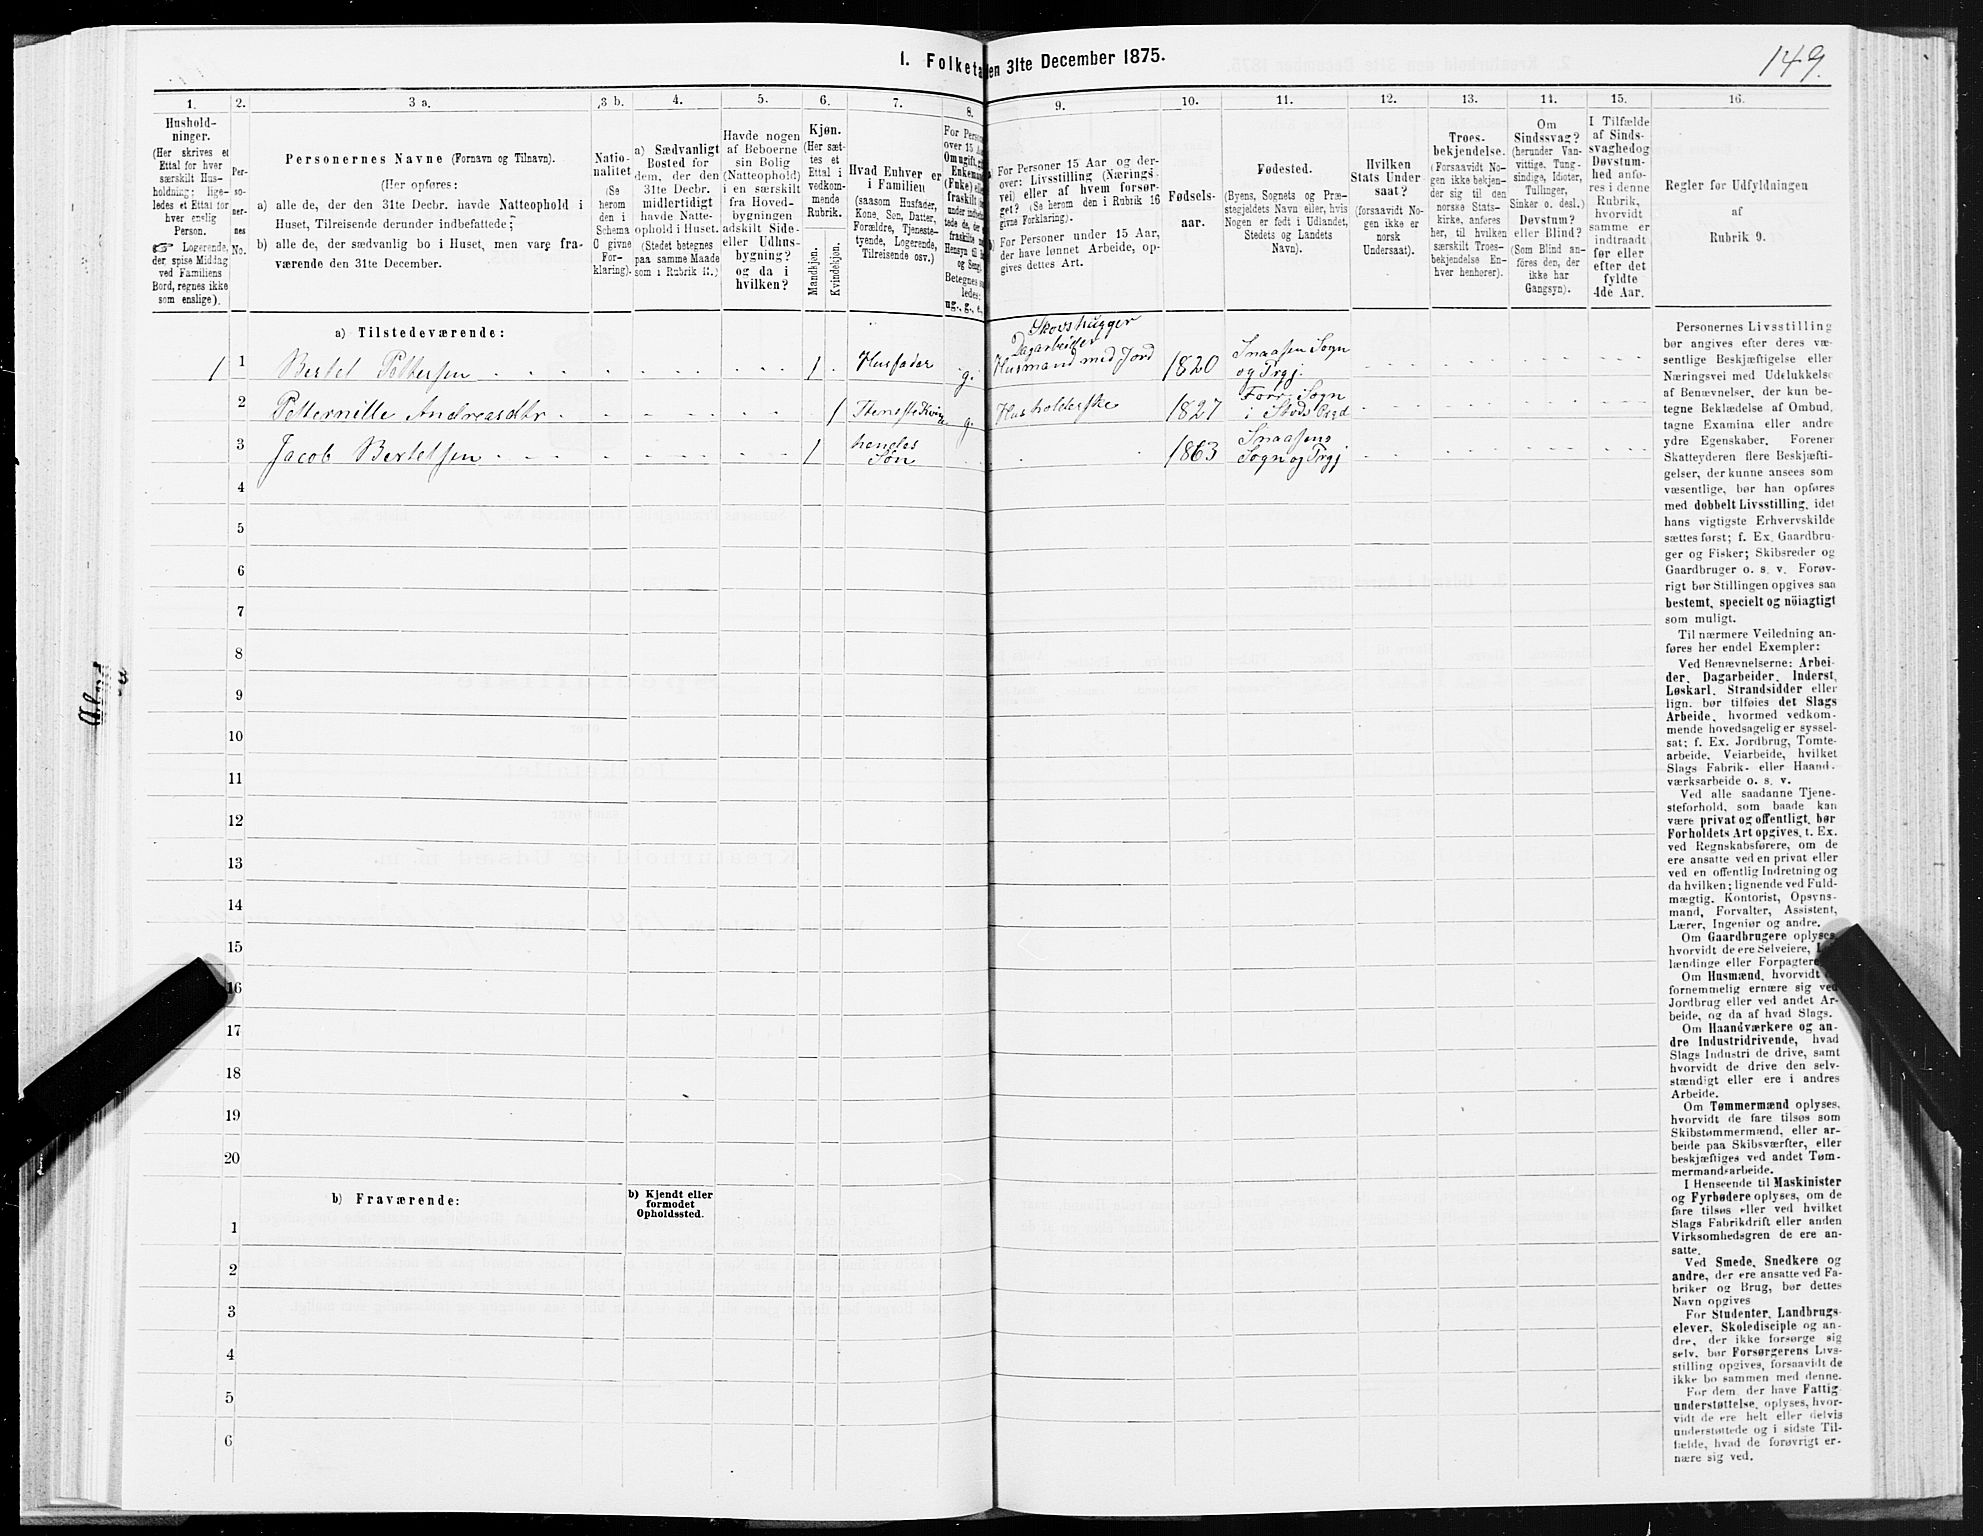 149.
1. Folketa
den 31te December 1875.
1.
2.
3 a.
3 b.
4.
5.
6.
7.
8.
9.
10.
11.
12.
13.
14.
15.
16.
Hushold-
ninger.
(Her skrives et
Ettal for hver
særskilt Hus-
holdning; lige-
ledes et Ettal for
hver enslig
Person.
☞ Logerende,
der spise Middag
ved Familiens
Bord, regnes ikke
som enslige).
Per-
so-
ner-
nes
No.
Personernes Navne (Fornavn og Tilnavn).
(Her opføres:
a) alle de, der den 31te Decbr. havde Natteophold i
Huset, Tilreisende derunder indbefattede;
b) alle de, der sædvanlig bo i Huset, men vare fra-
værende den 31te December.
Natio-
nalitet
(Se
herom
den i
Schema
C givne
For-
klaring).
a) Sædvanligt
Bosted for
dem, der den
31te Decbr.
midlertidigt
havde Natte-
ophold i Huset.
(Stedet betegnes
paa samme Maade
som i Rubrik 11.)
Havde nogen
af Beboerne
sin Bolig
(Natteophold)
i en særskilt
fra Hoved-
bygningen
adskilt Side-
eller Udhus-
bygning?
og da i
hvilken?
Kjøn.
(Her sæt-
tes et
Ettal i
vedkom-
mende
Rubrik.
Mandkjøn.
Kvindekjøn.
Hvad Enhver er
i Familien
(saasom Husfader,
Kone, Søn, Datter,
Forældre, Tjeneste-
tyende, Logerende,
Tilreisende osv.)
For Person
over 15 Aa
Om ugift, g
Enkema
(Fnke) el
fraskilt
under indbe
tede de, der
fraskilte
Hensyn til
og Seng
Betegnes s
ledes:
ug., g., e,
a) For Personer 15 Aar og der-
over: Livsstilling (Nærings-
vei) eller af hvem forsør-
get? (Se herom den i Rubrik 16
givne Forklaring.)
b) For Personer under 15 Aar,
der have lønnet Arbeide, op-
gives dettes Art.
Fødsels-
aar.
Fødested.
(Byens, Sognets og Præ-
stegjeldets Navn eller, hvis
Nogen er født i Udlandet,
Stedets og Landets
Navn).
Hvilken
Stats Under-
saat?
(forsaavidt No-
gen ikke er
norsk
Undersaat).
Troes-
bekjendelse.
(Forsaavidt No-
gen ikke bekjen-
der sig til den
norske Stats-
kirke, anføres
her, til hvilken
særskilt Troes-
bekjendelse En-
hver henhører).
Om
Sindssvag?
(herunder Van-
vittige, Tung-
sindige, Idioter,
Tullinger,
Sinker o. desl.)
Døvstum?
eller Blind?
(Som Blind an-
føres den, der
ikke har
Gangsyn).
I Tilfælde
af Sinds-
svaghed og
Døvstum-
hed anfø-
res i denne
Rubrik,
hvorvidt
samme er
indtraadt
før eller
efter det
fyldte
4de Aar.
Regler for Udfyldningen
af
Rubrik 9.
a) Tilstedeværende:
Skovshugger
Dagarbeider
1 1 Bertel Pettersen 1 Husfader g. Husmand med Jord 1820 Snaasen Sogn
og Prgj.
2 Petternille Andreasdtr 1 Tjeneste Kvin g. Husholderske 1827 Forr Sogn
i Stods Prgd
3 Jacob Bertelsen 1 hendes
Søn 1863 Snaasens
Sogn og Prgj
4
5
6
7
8
9
10
11
12
13
14
15
16
17
18
19
20
b) Fraværende:
b) Kjendt eller
formodet
Opholdssted.
1
2
3
4
5
6
Personernes Livsstilling
bør angives efter deres væ-
sentlige Beskjæftigelse eller
Næringsvei med Udelukkelse
af Benævnelser, der kun be-
tegne Beklædelse af Ombud,
tagne Examina eller andre
ydre Egenskaber. Forener
Skatteyderen flere Beskjæfti-
gelser, der kunne ansees som
væsentlige, bør han opføres
med dobbelt Livsstilling, idet
hans vigtigste Erhvervskilde
sættes først; f. Ex. Gaardbru-
ger og Fisker; Skibsreder og
Gaardbruger o. s. v. Forøv-
rigt bør Stillingen opgives saa
bestemt, specielt og nöiagtigt
som muligt.
Til nærmere Veiledning an-
føres her endel Exempler:
Ved Benævnelserne: Arbei-
der, Dagarbeider, Inderst,
Løskarl, Strandsidder eller
lign. bør tilføies det Slags
Arbeide, hvormed vedkom-
mende hovedsagelig er syssel-
sat; f. Ex. Jordbrug, Tomte-
arbeide, Veiarbeide, hvilket
Slags Fabrik- eller Haand-
værksarbeide o. s. v.
Ved alle saadanne Tjene-
steforhold, som baade kan
være privat og offentligt, bør
Forholdets Art opgives, t. Ex.
ved Regnskabsførere, om de
ere ansatte ved en privat eller
ved en offentlig Indretning og
da hvilken; lignende ved Fuld-
mægtig, Kontorist, Opsyns-
mand, Forvalter, Assistent,
Lærer, Ingeniør og andre.
Om Gaardbrugere oplyses,
hvorvidt de ere Selveiere,
lændinge eller Forpagtere
Om Husmænd, hvorvidt
fornemmelig ernære sig ved
Jordbrug eller ved andet Ar-
beide, og da af hvad Slags.
Om Haandværkere og an-
dre Industridrivende, hvad
Slags Industri de drive, samt
hvorvidt de drive den selv-
stændigt eller ere i andres
Arbeide.
Om Tømmermænd oplyses,
hvorvidt de fare tilsøs som
Skibstømmermænd, eller ar-
beide paa Skibsværfter, eller
beskjæftiges ved andet Tøm-
mermandsarbeide.
I Henseende til Maskinister
og Fyrbødere oplyses, om de
fare tilsøs eller ved hvilket
Slags Fabrikdrift eller anden
Virksomhedsgren de ere an-
satte.
Ved Smede, Snedkere og
andre, der ere ansatte ved Fa-
briker og Brug, bør dettes
Navn opgives
For Studenter, Landbrugs-
elever, Skoledisciple og an-
dre, der ikke forsørge sig
selv, bør Forsørgerens Livs-
stilling opgives, forsaavidt de
ikke bo sammen med denne.
For dem, der have Fattig-
understøttelse, oplyses, hvor-
vidt de ere helt eller delvis
understøttede og i sidste Til-
fælde, hvad de forøvrigt er-
nære sig ved.